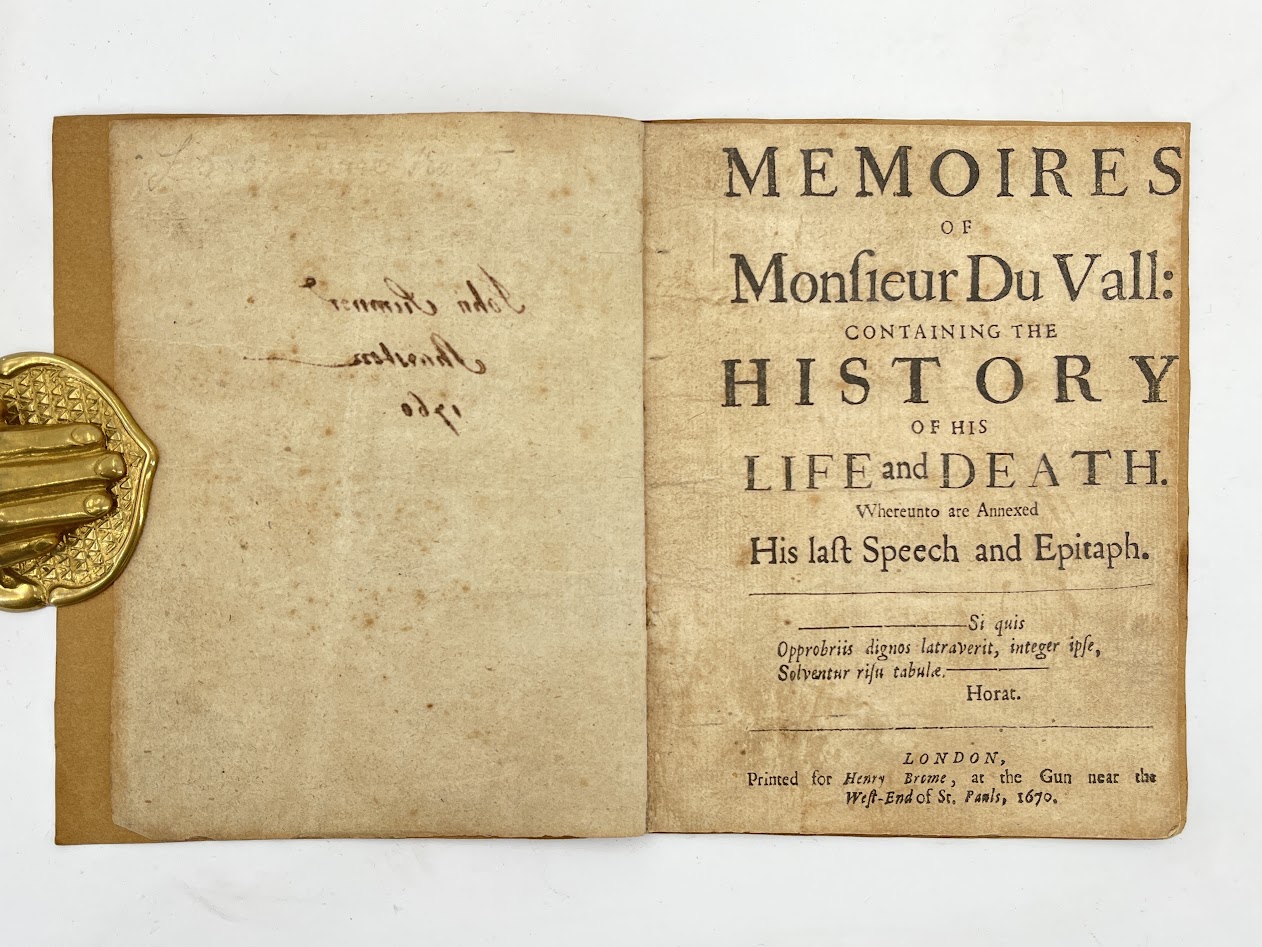 John
1760
MEMOIRES
OF
Monſieur Du Vall:
CONTAINING THE
HISTORY
OF HIS
LIFE and DEATH.
Whereunto are Annexed
His laſt Speech and Epitaph.
Si quis
Opprobriis dignos latraverit, integer ipſe,
Solventur riſu tabulæ.
Horat.
LONDON,
Printed for Henry Brome, at the Gun near the
Weſt-End of St. Pauls, 1670.